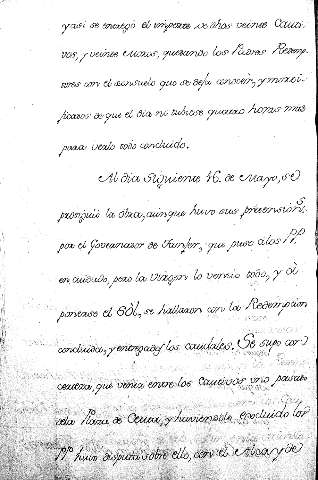 y así se entregó el importe de otros veinte Cauti-
vos, y veinte Moros, quedando los Padres Redemp-
tores con el consuelo que se deja conocer, y mortifi-
ficados de que el dia no tubiese quatro horas mas
para verlo todo concluido.
Al dia Siguiente 16. de Mayo, se
prosiguió la obra, aunque huvo sus pretensions.
por el Governador de Tanjer, que puso à los PP.
en cuidado, pero la Virgen lo venció todo, y à
ponerse el Sòl, se hallaron con la Redempcion
concluida, y entregados los caudales. Se supo con
certeza, que venia entre los Cautivos uno pasado
dela Plaza de Ceuta, y haviendole excluido los
PP. huvo disputa sobre ello, con el Alcayde